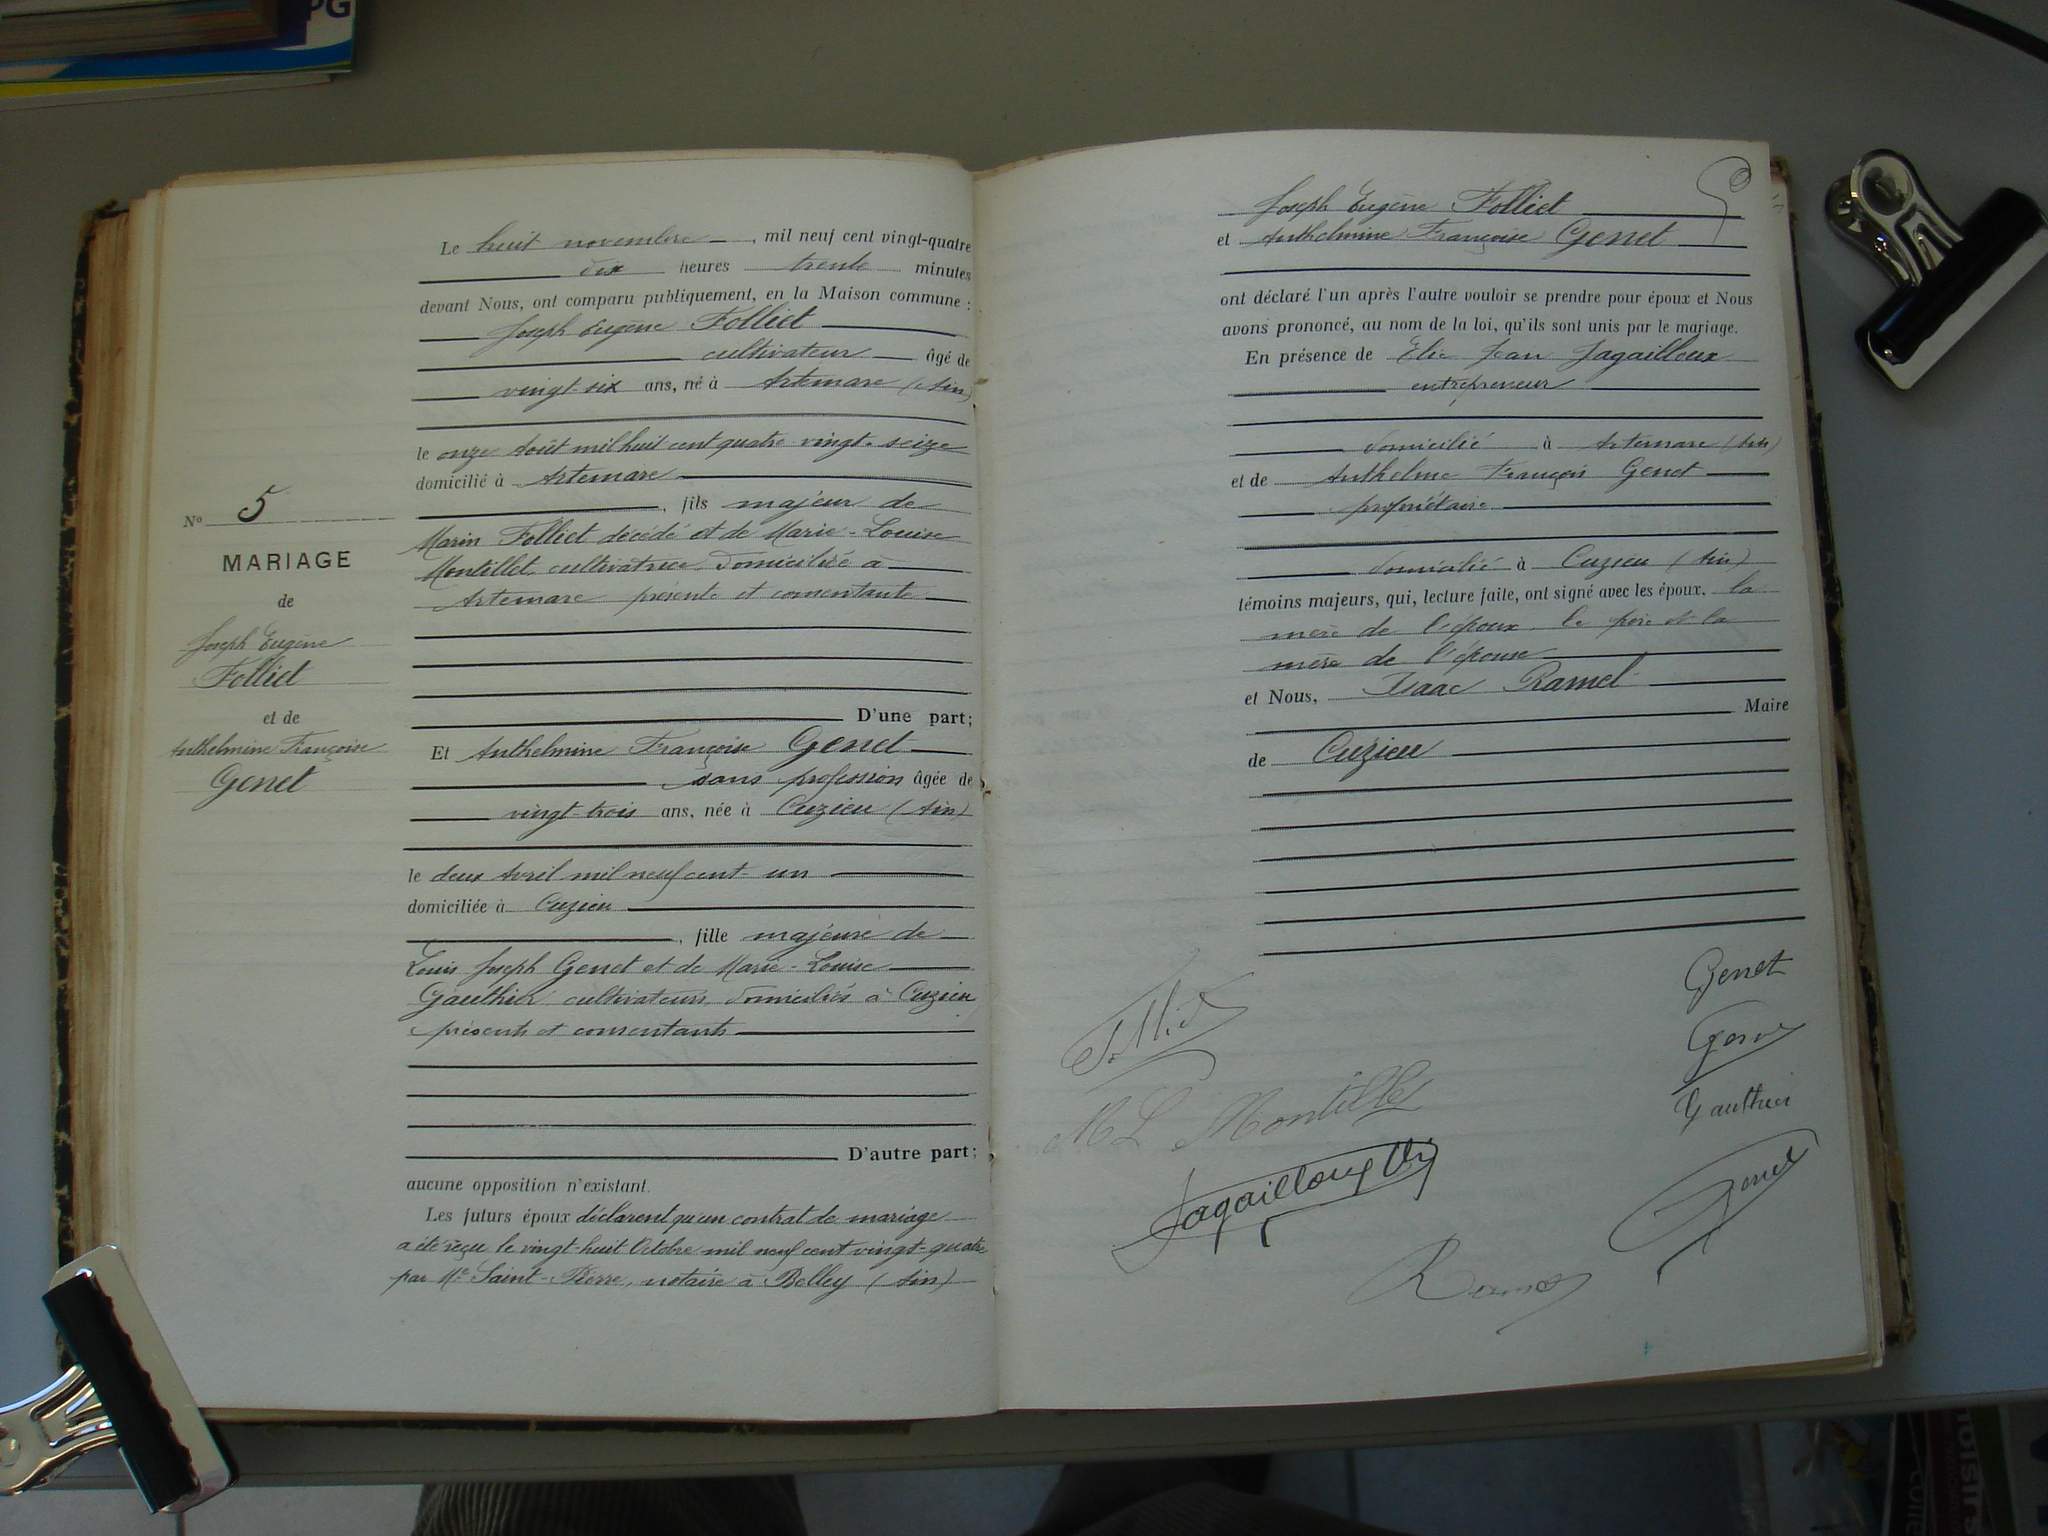 Le huit novembre, mil neuf cent vingt-quatre
dix heures trente minutes
devant Nous, ont comparu publiquement, en la Maison commune :
Joseph Eugène Folliet
cultivateur âgé de
vingt-six ans, né à Artemare (Ain)
le onze Août mil huit cent quatre-vingt-seize
domicilié à Artemare
, fils majeur de
Marin Folliet décédé et de Marie-Louise
Montillet, cultivatrice, domiciliée à
Artemare présente et consentante
D'une part;
Nº 5
MARIAGE
de
Joseph Eugène
Folliet
et de
Anthelmine Françoise
Genet
Et Anthelmine Françoise Genet
sans profession âgée de
vingt-trois ans, née à Cuzieu (Ain)
le deux Avril mil neuf cent un
domiciliée à Cuzieu
, fille majeure de
Louis Joseph Genet et de Marie-Louise
Gauthier, cultivateurs, domiciliés à Cuzieu
présents et consentants
D'autre part;
aucune opposition n'existant.
Les futurs époux déclarent qu'un contrat de mariage
a été reçu le vingt-huit Octobre mil neuf cent vingt-quatre
par Me Saint-Pierre, notaire à Belley (Ain)
Joseph Eugène Folliet
et Anthelmine Françoise Genet
ont déclaré l'un après l'autre vouloir se prendre pour époux et Nous
avons prononcé, au nom de la loi, qu'ils sont unis par le mariage.
En présence de Elie Jean Jagailloux
entrepreneur
domicilié à Artemare (Ain)
et de Anthelme François Genet
propriétaire
domicilié à Cuzieu (Ain)
témoins majeurs, qui, lecture faite, ont signé avec les époux, la
mère de l'époux, le père et la
mère de l'épouse
et Nous, Isaac Ramel
Maire
de Cuzieu
Genet
Folliet
Genet
M L Montillet
Gauthier
Jagailloux Eli
Genet
Ramel